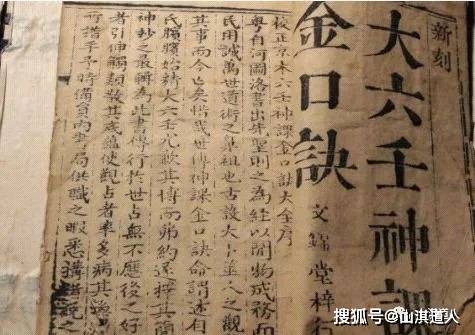 新刻
大六壬神課
金口訣
文錦堂梓
校正京本六壬神課金口訣大全序
粵自河圖洛書出乎聖則之為經以開物成務而
民用誠萬世道術之鼻祖也古設大卜筮人之觀
其事而今亡矣惜哉世傳神課金口訣命謂述有
氏臏始精大六壬九歌其博而弗約遂擇其簡
神妙之最輯為此書傳行於世占無不應後之好
者引伸觸類發其底蘊使觀占者率多病其
所措手予時備員內事局供職之暇悉搆諸說之
搜狐号@山淇道人